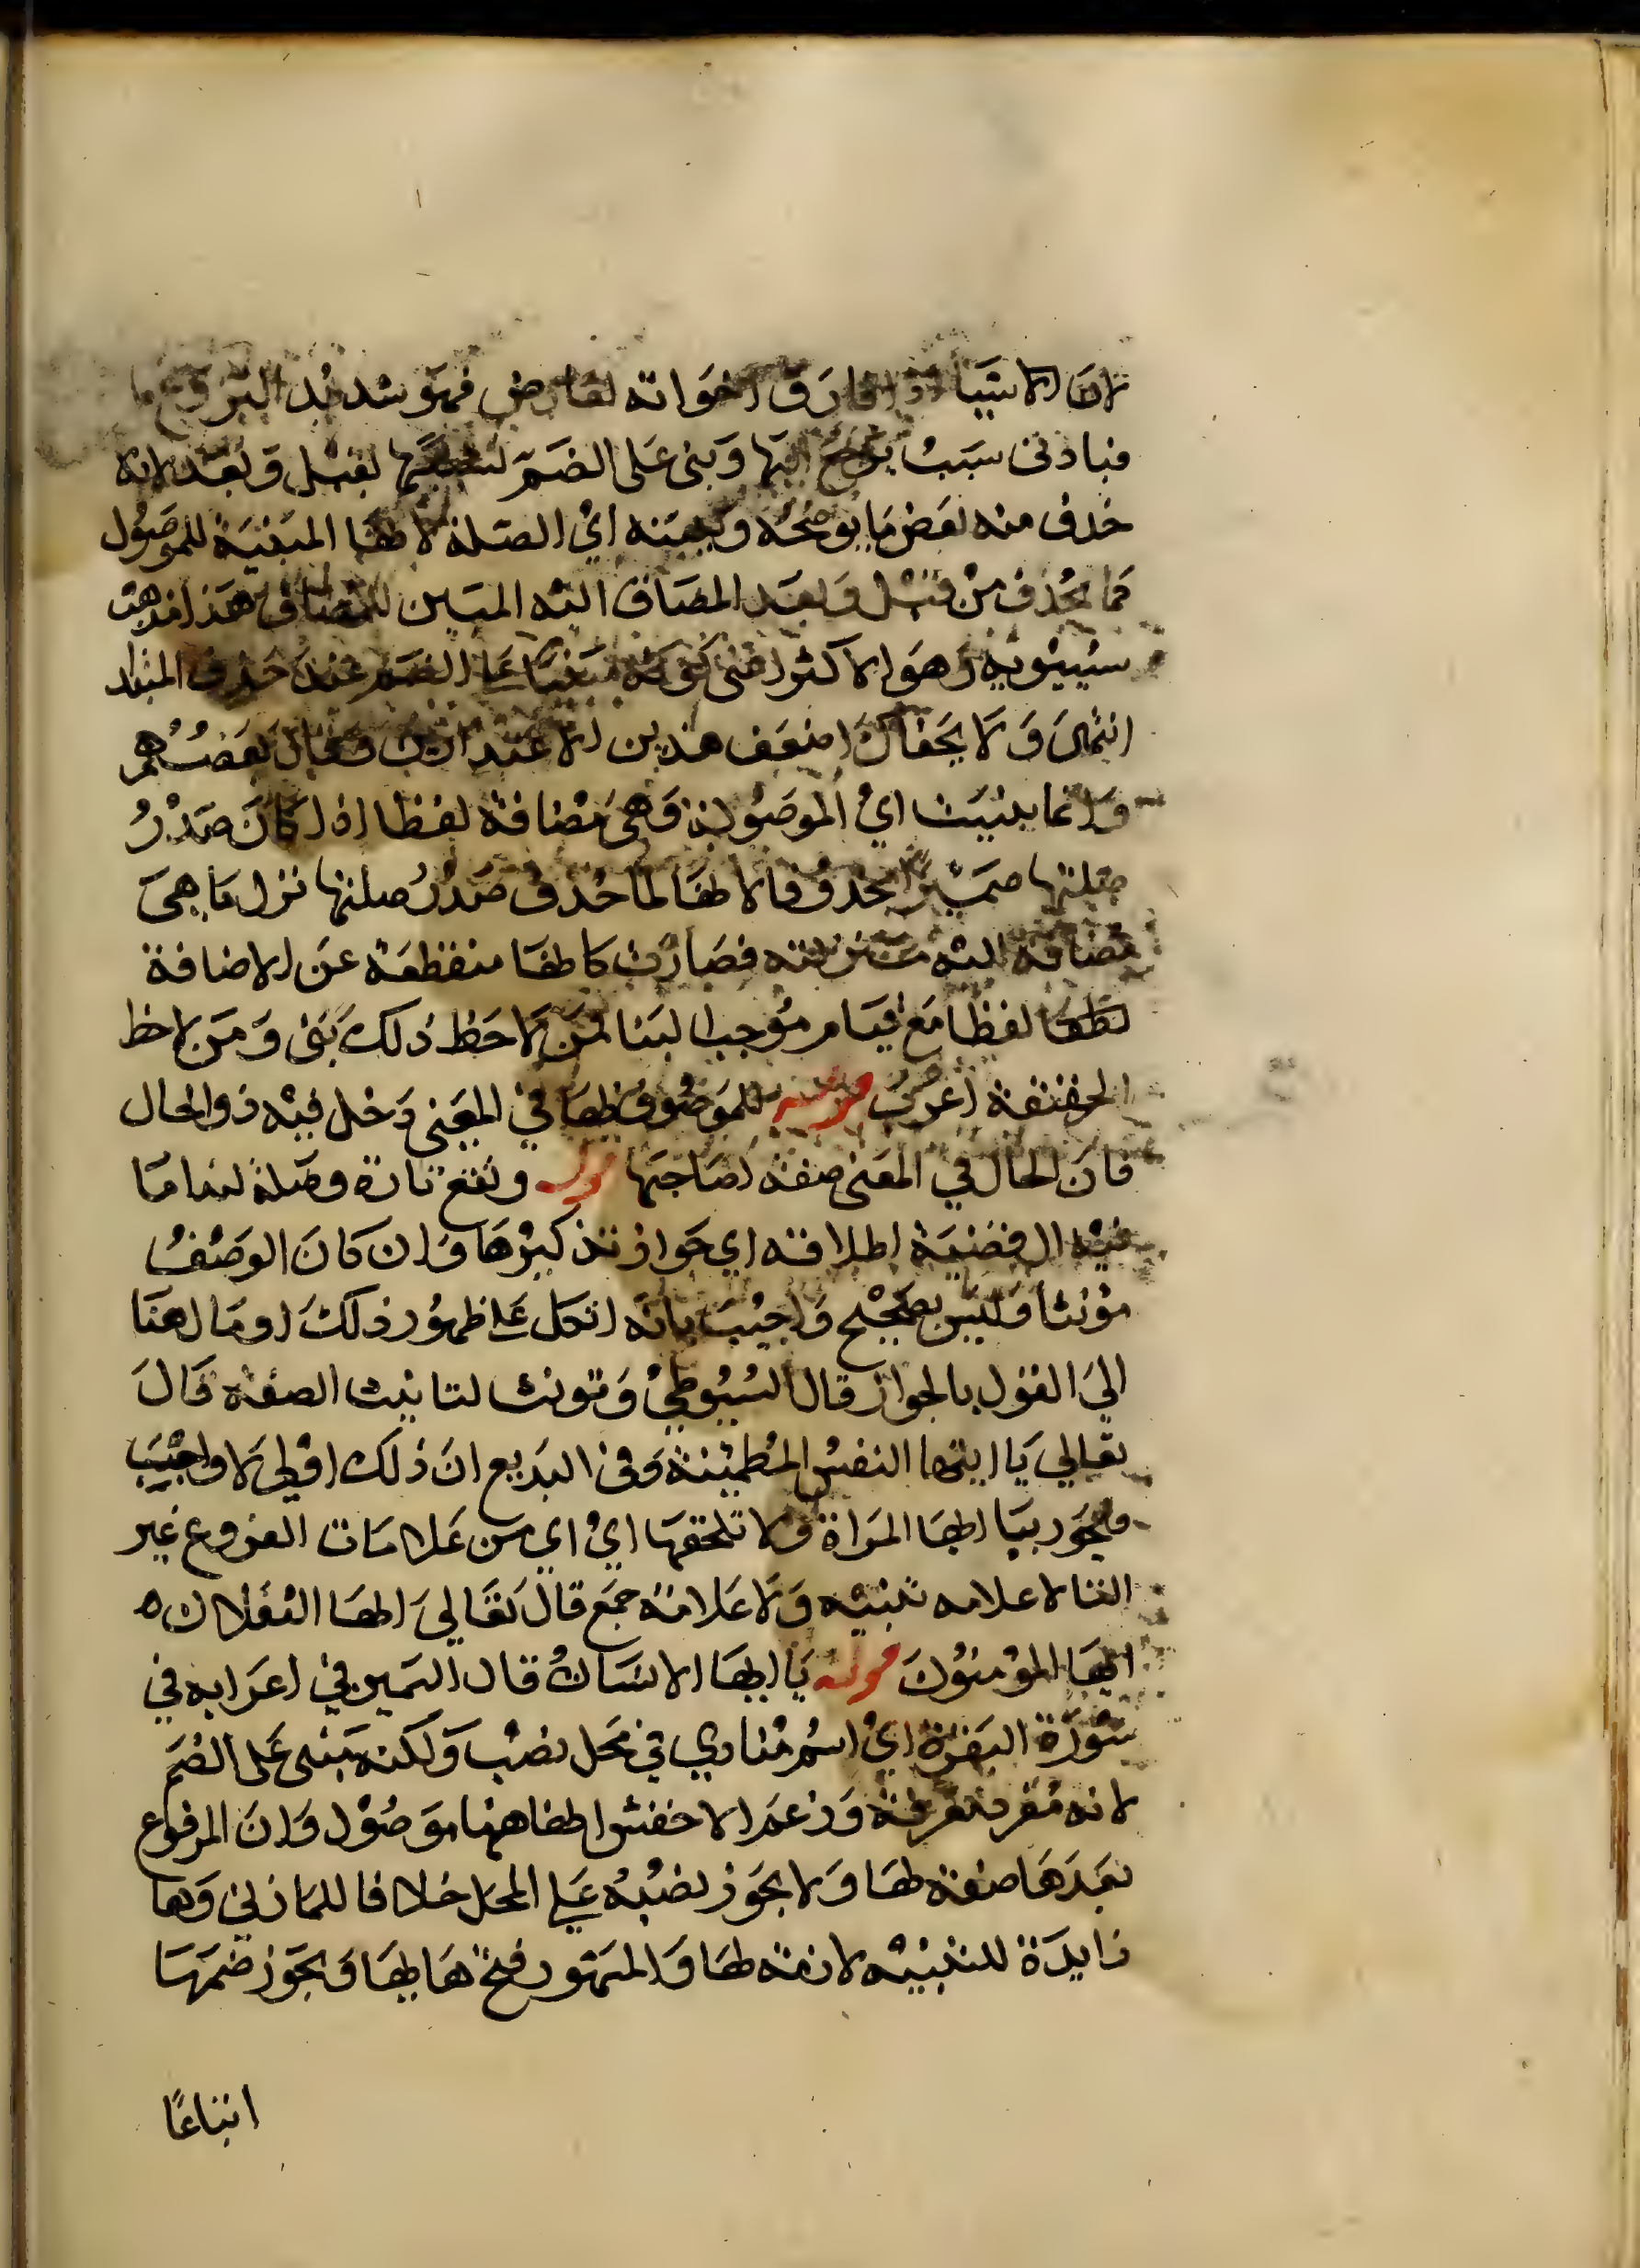 لان الاشيا اذا فارق اخواته لعارض فهو شديد النزوع
فبادنى سبب يرجع اليها وبنى على الضم لشبهها بقبل وبعد لانه
حذف منه بعض ما يوضحه ويبينه اي الصلة لانها المبنية للموصول
كما يحذف من قبل وبعد المضاف اليه المبين للمضاف هذا مذهب
سيبويه وهو الاكثر اعنى كونه مبنيا على الضم عند حذف المبتدا
انتهى ولا يخفاك اضعف هذين الاعتذارين وقال بعضهم
وانما بنيت اي الموصولة وهي مضافة لفظا اذا كان صدر
صلتها ضميرا محذوفا لانها لما حذف صدر صلتها نزل ما هي
مضافة اليه منزلته فصارت كانها منقطعة عن الاضافة
لفظا مع قيام موجب البنا فمن لاحظ ذلك بنى ومن لاحظ
الحقيقة اعرب قوله للموصوف بها في المعنى دخل فيه ذو الحال
فان الحال في المعنى صفة لصاحبها قوله وتقع تارة وصلة لندا ما
فيه ال قضية اطلاقه اي جواز تذكيرها وان كان الوصف
مؤنثا وليس بصحيح واجيب بانه اتكل على ظهور ذلك او مال هنا
الي القول بالجواز قال السيوطي وتونث لتانيث الصفة قال
تعالي يا ايتها النفس المطمئنة وفى البديع ان ذلك اولى لا واجب
ويجوز يا ايها المراة ولا تلحقها اي اي من علامات الفروع غير
التا لا علامه تثنيه ولا علامة جمع قال تعالي ايها الثقلان ه
ايها المؤمنون قوله يا ايها الانسان قال السمين في اعرابه في
سورة البقرة اي اسم منادي في محل نصب ولكنه مبنى على الضم
لانه مفرد معرفة وزعم الاخفش انها هنا موصول وان المرفوع
بعدها صفة لها ولا يجوز نصبه علي المحل خلافا للمازني وها
زايدة للتنبيه لازمة لها والمشهور فتح هايها ويجوز ضمها
اتباعا